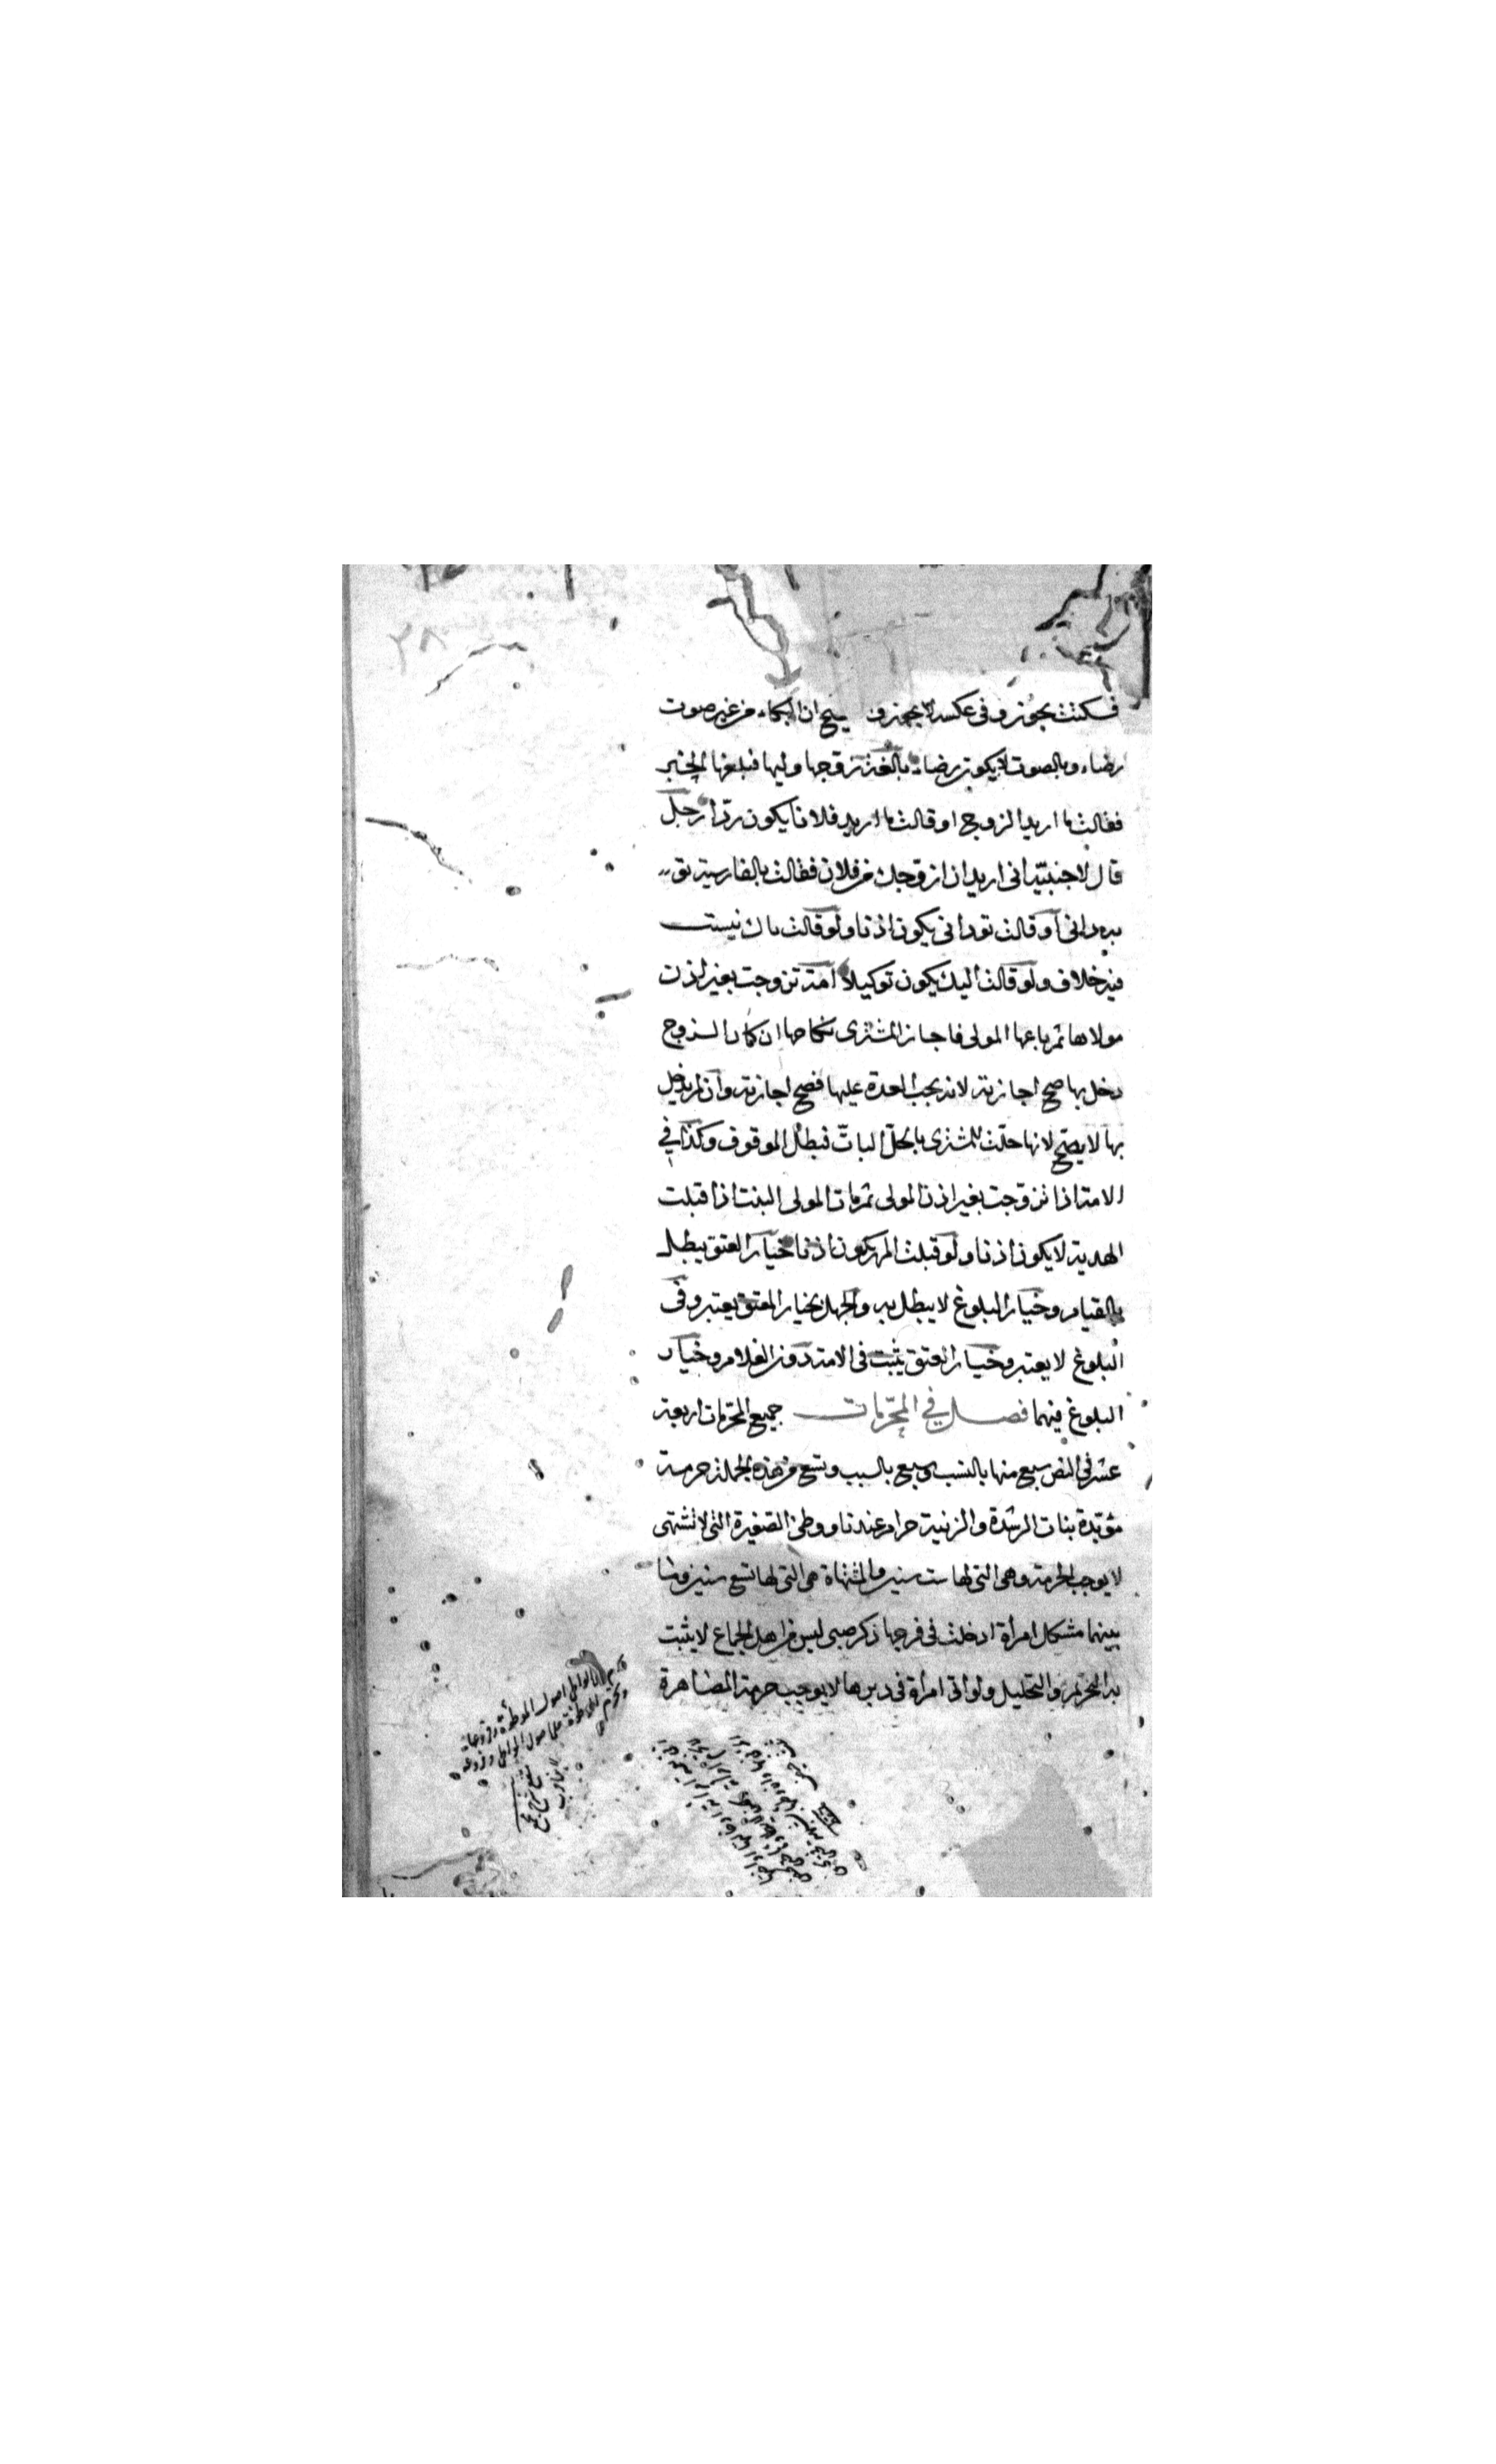 ٣٨
فسكتت يجوز وفى عكسه لا يجوز و ان البكاء من غير صوت
رضاء وبالصوت لا يكون رضاء بالغة زوجها وليها فبلغها الخبر
فقالت ما اريد الزوج او قالت ما اريد فلانا يكون ردّا رجل
قال لاجنبيّة انى اريد ان ازوجك من فلان فقالت بالفارسية تو
به دانى او قالت تو دانى يكون اذنا ولو قالت باك نيست
فيه خلاف ولو قالت اليك يكون توكيلا امة تزوجت بغير اذن
مولاها ثم باعها المولى فاجاز المشترى نكاحها ان كان الزوج
دخل بها صح اجازته لانه يجب العدة عليها فصح اجازته وان لم يدخل
بها لا يصحّ لانها حلّت للمشترى بالحلّ الباتّ فبطل الموقوف وكذا في
الامة اذا تزوّجت بغير اذن المولى ثم مات المولى البنت اذا قبلت
الهدية لا يكون اذنا ولو قبلت المهر يكون اذنا خيار العتق يبطل
بالقيام وخيار البلوغ لا يبطل به والجهل بخيار العتق يعتبر وفى
البلوغ لا يعتبر وخيار العتق يثبت فى الامة دون الغلام وخيار
البلوغ فيهما فصل في المحرّمات جميع المحرّمات اربعة
عشر فى النص سبع منها بالنسب وسبع بالسبب وتسع من هذه الجملة حرمة
مؤبّدة بنات الرشدة والزنية حرام عندنا ووطئ الصغيرة التى لا تشتهى
لا يوجب الحرمة وهى التى لها ست سنين والمشتهاة هى التى لها تسع سنين وما
بينهما مشكل امرأة ادخلت فى فرجها ذكر صبى ليس من اهل الجماع لا يثبت
به التحريم والتحليل ولو اتى امرأة فى دبرها لا يوجب حرمة المصاهرة
اصول الموطؤة وفروعها
على اصول الواطى وفروعه